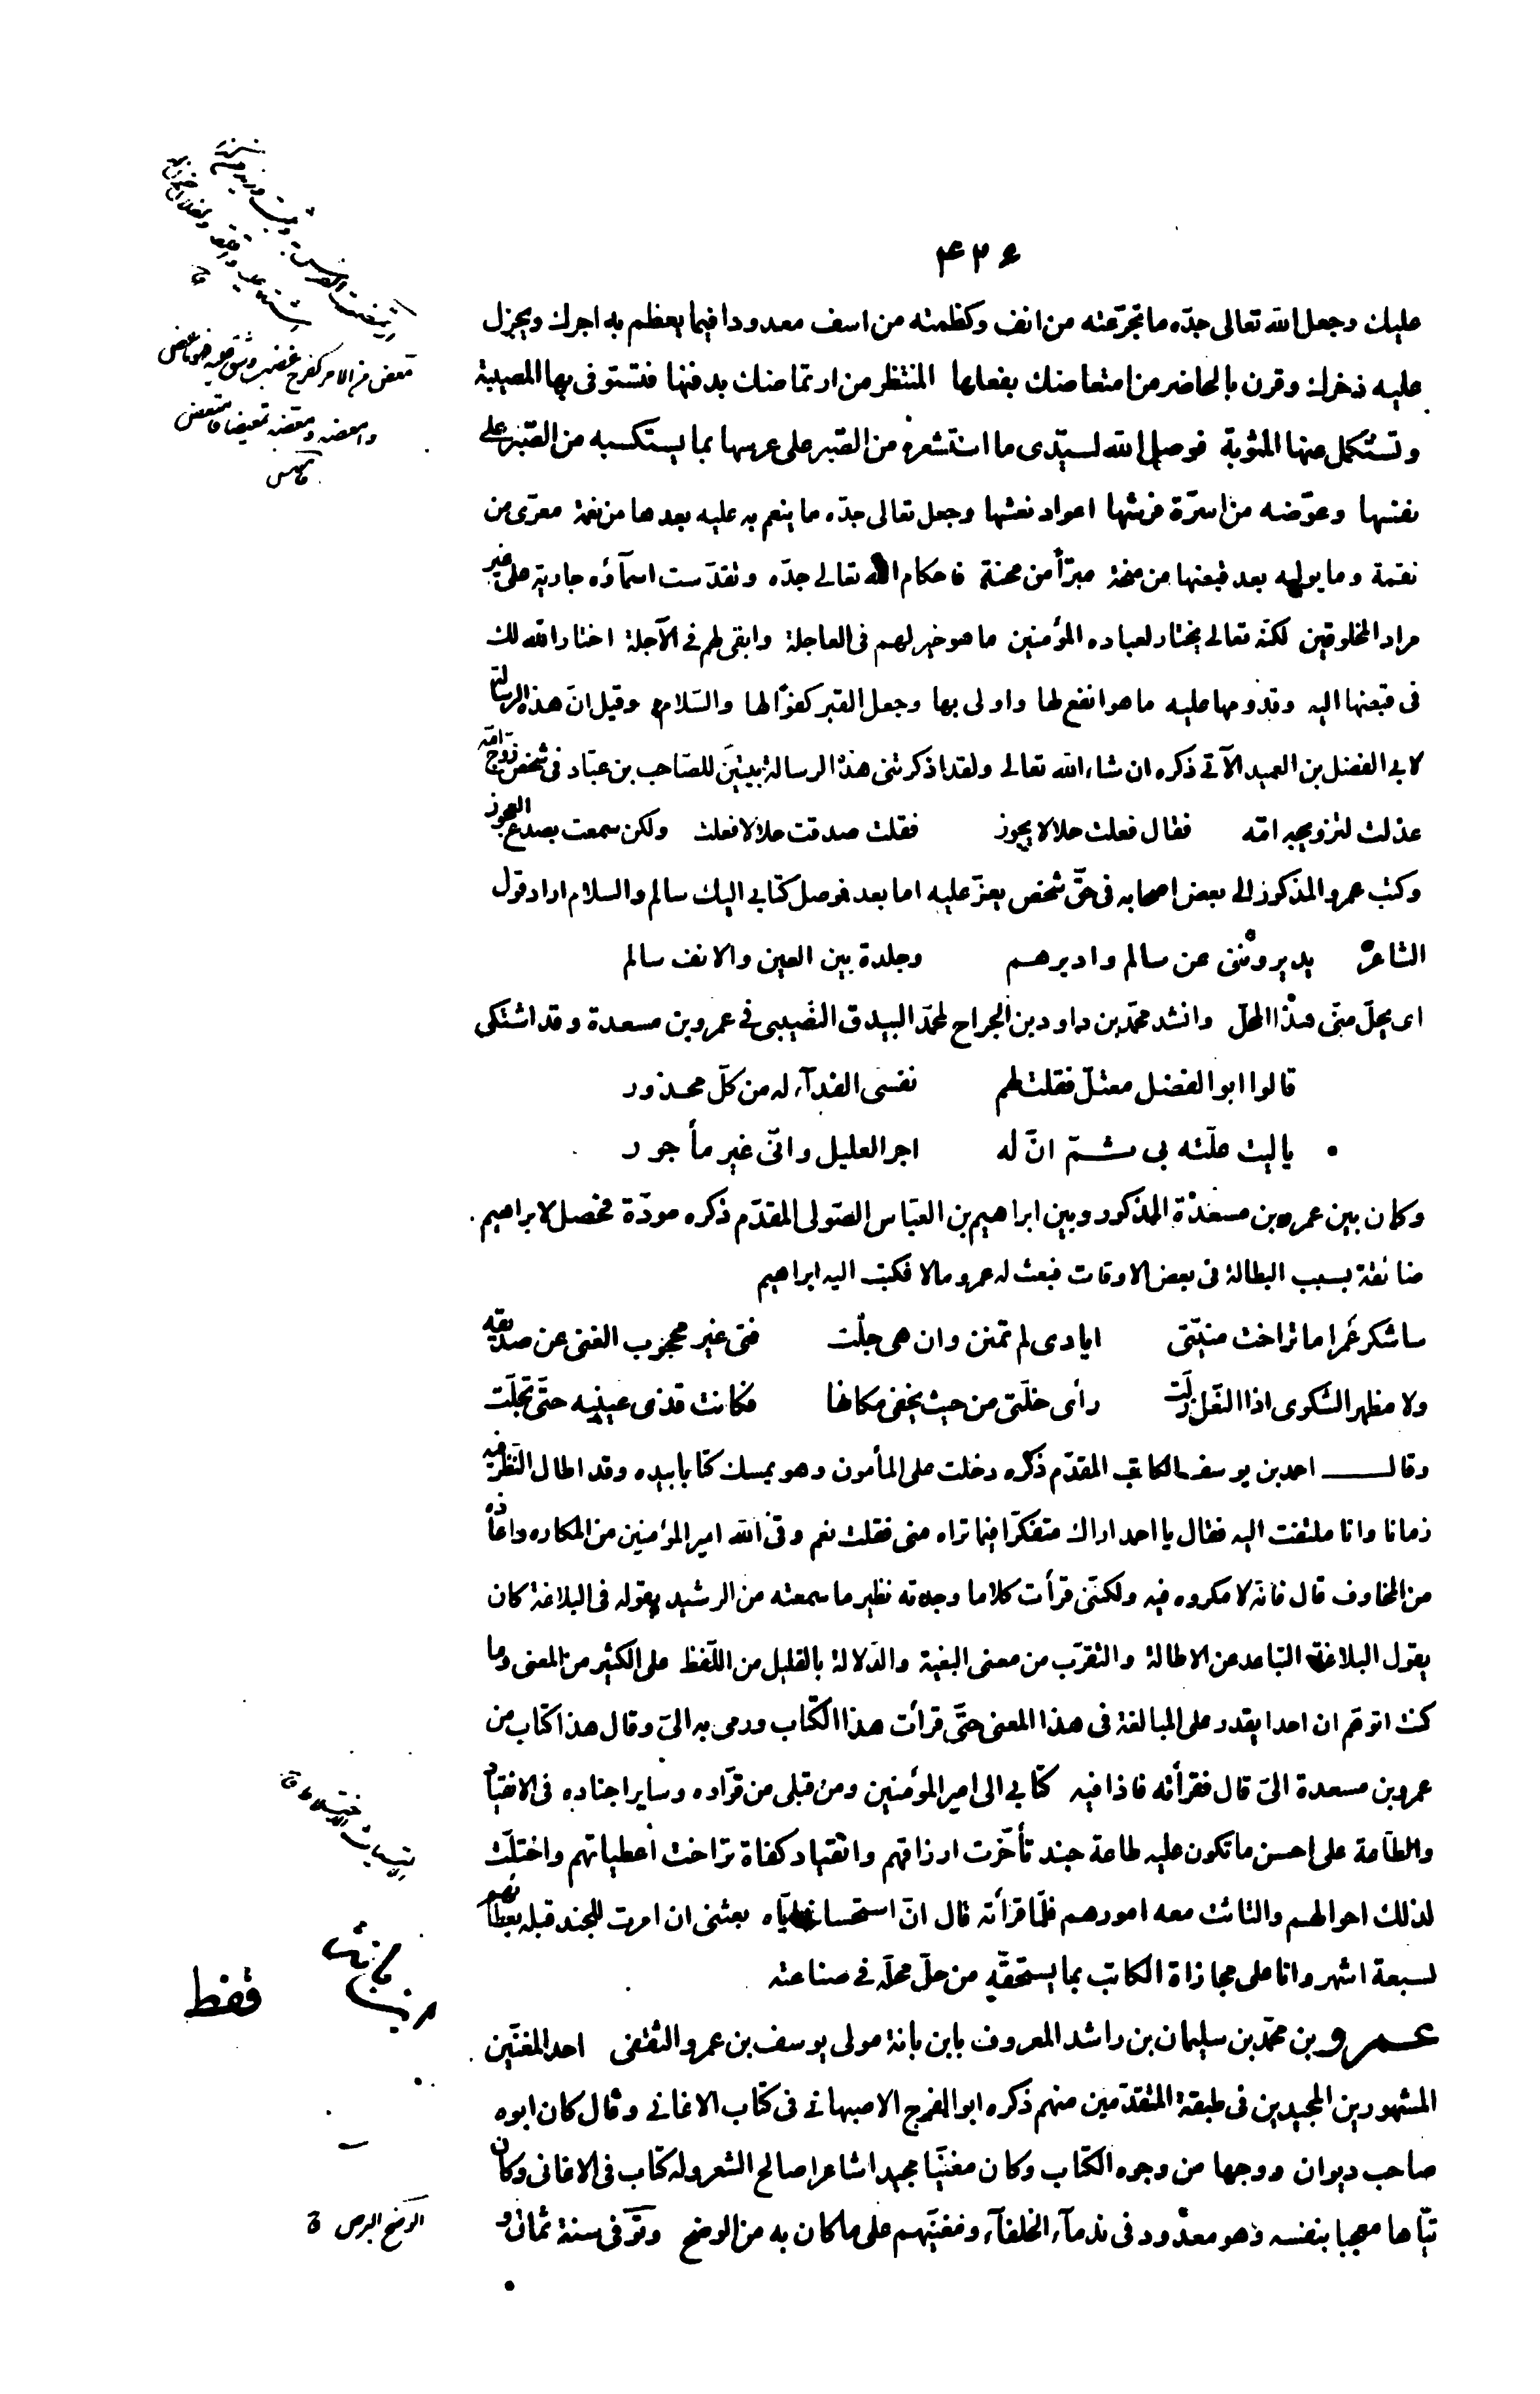 ٤٢٤
عليك وجعل الله تعالى جدّه ما تجرّعته من انف وكظمته من اسف معدودا فيما يعظم به اجرك ويجزل
عليه ذخرك وقرن بالحاضر من امتعاضك بفعلها المنتظر من ارتماضك بدفنها فتستوفى بها المصيبة
وتستكمل عنها المثوبة فوصل الله لسيّدى ما استشعره من الصّبر على عرسها بما يستكسبه من الصّبر على
نفسها وعوّضه من اسرّة فرشها اعواد نعشها وجعل تعالى جدّه ما ينعم به عليه بعدها من نعمة معرّى من
نقمة وما يوليه بعد قبضها من منحة مبرّأ من محنة فاحكام الله تعالى جدّه وتقدّست اسمآؤه جارية على غير
مراد المخلوقين لكنّه تعالى يختار لعباده المؤمنين ما هو خير لهم فى العاجلة وابقى لهم فى الآجلة اختار الله لك
فى قبضها اليه وقدومها عليه ما هو انفع لها واولى بها وجعل القبر كفوًا لها والسّلام وقيل انّ هذه الرسالة
لابى الفضل بن العميد الآتى ذكره ان شاء الله تعالى ولقد اذكرتنى هذه الرسالة بيتين للصّاحب بن عبّاد فى شخص زوّج امّه
عذلت لتزويجه امّه فقال فعلت حلالا يجوز فقلت صدقت حلالا فعلت ولكن سمعت بصدع العجوز
وكتب عمرو المذكور الى بعض اصحابه فى حقّ شخص يعزّ عليه اما بعد فوصل كتابى اليك سالم والسلام اراد قول
الشاعر يديروننى عن سالم واديرهم وجلدة بين العين والانف سالم
اى يحلّ منّى هذا المحلّ وانشد محمّد بن داود بن الجراح لمحمّد البيدق النصيبى فى عمرو بن مسعدة وقد اشتكى
قالوا ابو الفضل معتلّ فقلت لهم نفسى الفدآء له من كلّ محذور
يا ليت علّته بى ثمّ انّ له اجر العليل وانّى غير مأجور
وكان بين عمرو بن مسعدة المذكور وبين ابراهيم بن العبّاس الصّولى المقدّم ذكره مودّة فحصل لابراهيم
ضائقة بسبب البطالة فى بعض الاوقات فبعث له عمرو مالا فكتب اليه ابراهيم
ساشكر عمرا ما تراخت منيّتى ايادى لم تمنن وان هى جلّت فتى غير محجوب الغنى عن صديقه
ولا مظهر الشكوى اذا النعل زلّت رأى خلّتى من حيث يخفى مكانها فكانت قذى عينيه حتّى تجلّت
وقال احمد بن يوسف الكاتب المقدّم ذكره دخلت على المأمون وهو يمسك كتابا بيده وقد اطال النّظر فيه
زمانا وانا ملتفت اليه فقال يا احمد اراك متفكّرا فيما تراه منى فقلت نعم وقى الله امير المؤمنين من المكاره واعاذه
من المخاوف قال فانّه لا مكروه فيه ولكنّى قرأت كلاما وجدته نظير ما سمعته من الرشيد يقوله فى البلاغة كان
يقول البلاغة التباعد عن الاطالة والتقرّب من معنى البغية والدّلالة بالقليل من اللّفظ على الكثير من المعنى وما
كنت اتوهّم ان احدا يقدر على المبالغة فى هذا المعنى حتّى قرأت هذا الكتاب ورمى به الىّ وقال هذا كتاب من
عمرو بن مسعدة الىّ قال فقرأته فاذا فيه كتابى الى امير المؤمنين ومن قبلى من قوّاده وساير اجناده فى الانقياد
والطّاعة على احسن ما تكون عليه طاعة جند تأخّرت ارزاقهم وانقياد كفاة تراخت اعطياتهم واختلّت
لذلك احوالهم والتاثت معه امورهم فلمّا قرأته قال انّ استحسانى ايّاه بعثنى ان امرت للجند قبله بعطائهم
لسبعة اشهر وانا على مجازاة الكاتب بما يستحقّه من حلّ محلّه فى صناعته
عمرو بن محمّد بن سليمان بن راشد المعروف بابن بانة مولى يوسف بن عمرو الثقفى احد المغنّين
المشهورين المجيدين فى طبقة المتقدّمين منهم ذكره ابو الفرج الاصبهانى فى كتاب الاغانى وقال كان ابوه
صاحب ديوان ووجها من وجوه الكتّاب وكان مغنّيا مجيدا شاعرا صالح الشعر وله كتاب فى الاغانى وكان
تيّاها معجبا بنفسه وهو معدود فى ندمآء الخلفآء ومغنّيهم على ما كان به من الوضح وتوفّى سنة ثمان و
معض من الامر كفرح غضب وشق عليه فهو ماعض
وامعضه ومعضه تمعيضا فامتعض
ابن بانة
فقط
الوضح البرص ق